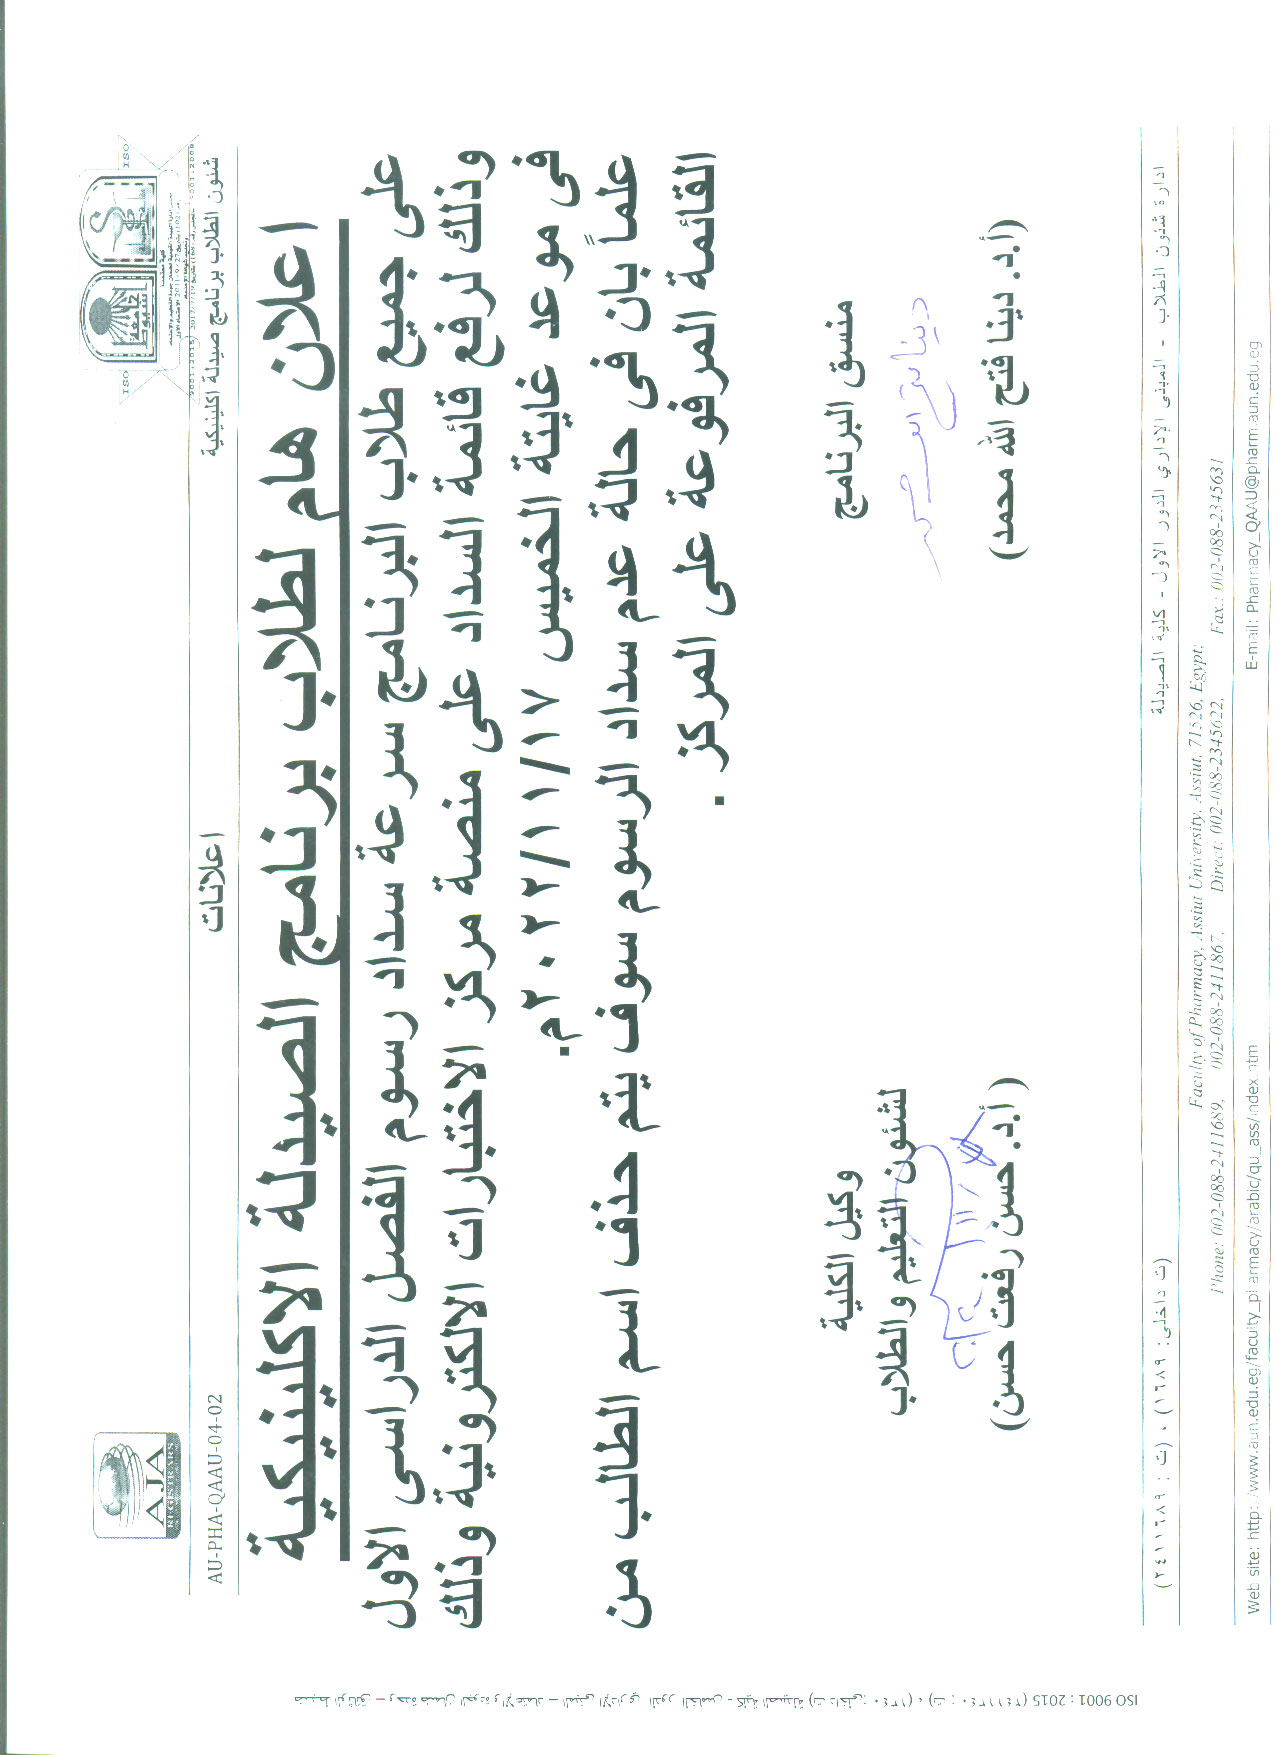 شئون الطلاب برنامج صيدلة اكلينيكية
اعلانات
AU-PHA-QAAU-04-02
AJA
REGISTRARS
ISO
ISO
اعلان هام لطلاب برنامج الصيدلة الاكلينيكية
على جميع طلاب البرنامج سرعة سداد رسوم الفصل الدراسى الاول
وذلك لرفع قائمة السداد على منصة مركز الاختبارات الالكترونية وذلك
فى موعد غايتة الخميس ٢٠٢٢/١١/١٧م.
علماً بان فى حالة عدم سداد الرسوم سوف يتم حذف اسم الطالب من
القائمة المرفوعة على المركز .
منسق البرنامج
(أ.د. دينا فتح الله محمد)
وكيل الكلية
لشئون التعليم والطلاب
(أ.د. حسن رفعت حسن)
ادارة شئون الطلاب - المبنى الإداري الدور الاول - كلية الصيدلة
(ت داخلى: ١٦٨٩) ، (ت : ٢٤١١٦٨٩)
Faculty of Pharmacy, Assiut University, Assiut, 71526, Egypt;
Phone: 002-088-2411689, 002-088-2411867, Direct: 002-088-2345622, Fax.: 002-088-2345631
Web site: http://www.aun.edu.eg/faculty_pharmacy/arabic/qu_ass/index.htm E-mail: Pharmacy_QAAU@pharm.aun.edu.eg
ضبط الوثائق – وحدة ضمان الجودة والاعتماد – المبنى الإداري الدور الخامس - كلية الصيدلة (ت داخلى: ١٣٤٠) ، (ت : ٢٤١١٣٤٠) ISO 9001 : 2015